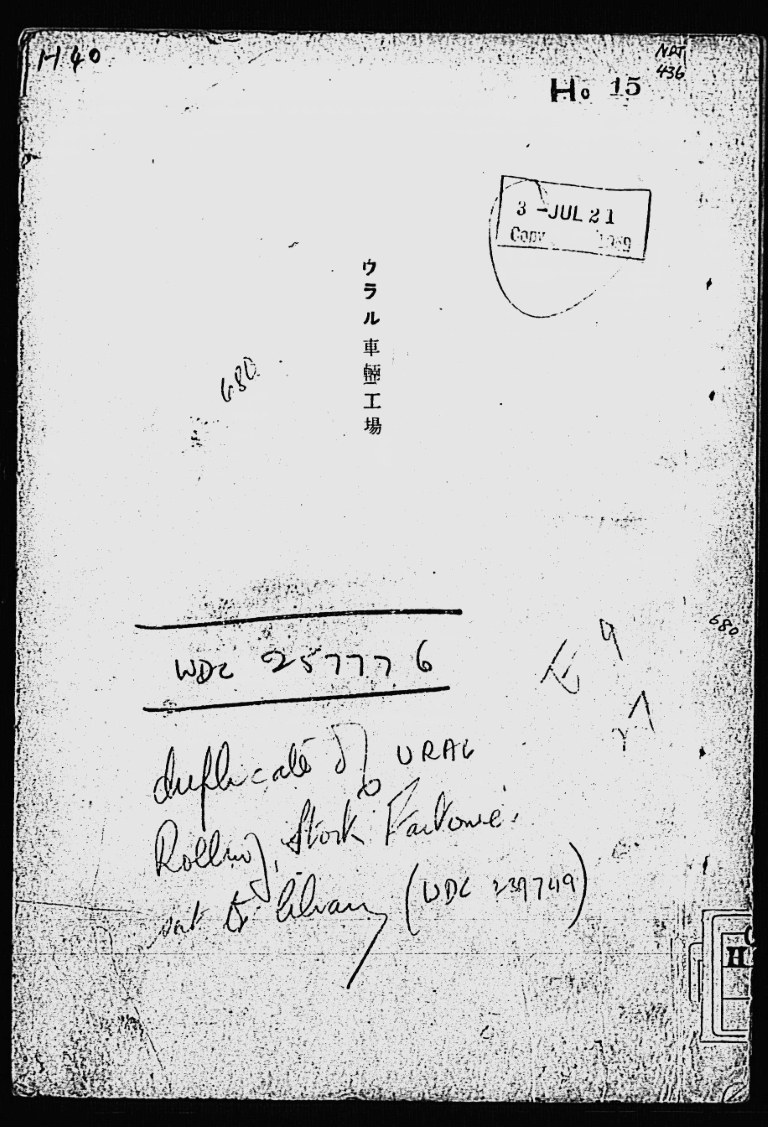 H 40
NDT
436
Ho 15
3 -JUL 21
Copy 1949
ウラル車輛工場
680
WDC 257776
680
duplicate of URAL
Rolling Stock Factories
sent to library (WDC 239749)
H